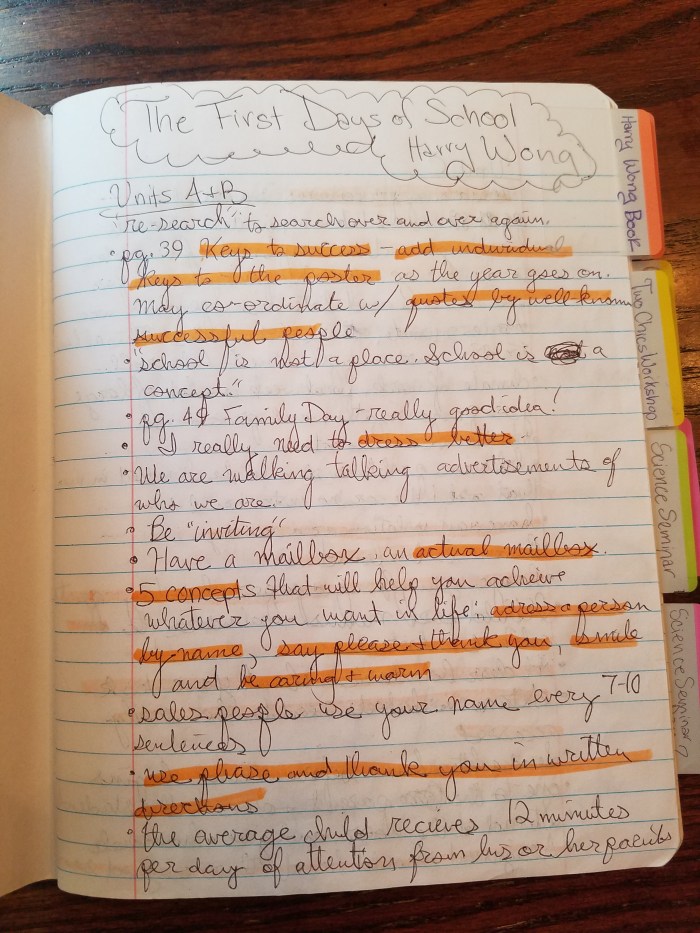 The First Days of School
Harry Wong
Units A+B
"re-search" to search over and over again.
• pg. 39 Keys to success - add individual
keys to the poster as the year goes on.
May co-ordinate w/ quotes by well known
successful people
• "school is not a place. School is a
concept."
• pg. 49 Family Day - really good idea!
• I really need to dress better -
• We are walking talking advertisements of
who we are.
• Be "inviting"
• Have a mailbox, an actual mailbox.
• 5 concepts that will help you achieve
whatever you want in life: adress a person
by name, say please + thank you, smile
and be caring + warm
• sales people use your name every 7-10
sentences
• use please and thank you in written
directions
• the average child recieves 12 minutes
per day of attention from his or her parents
Harry Wong Book
Two Chics Workshop
Science Seminar
Science Seminar